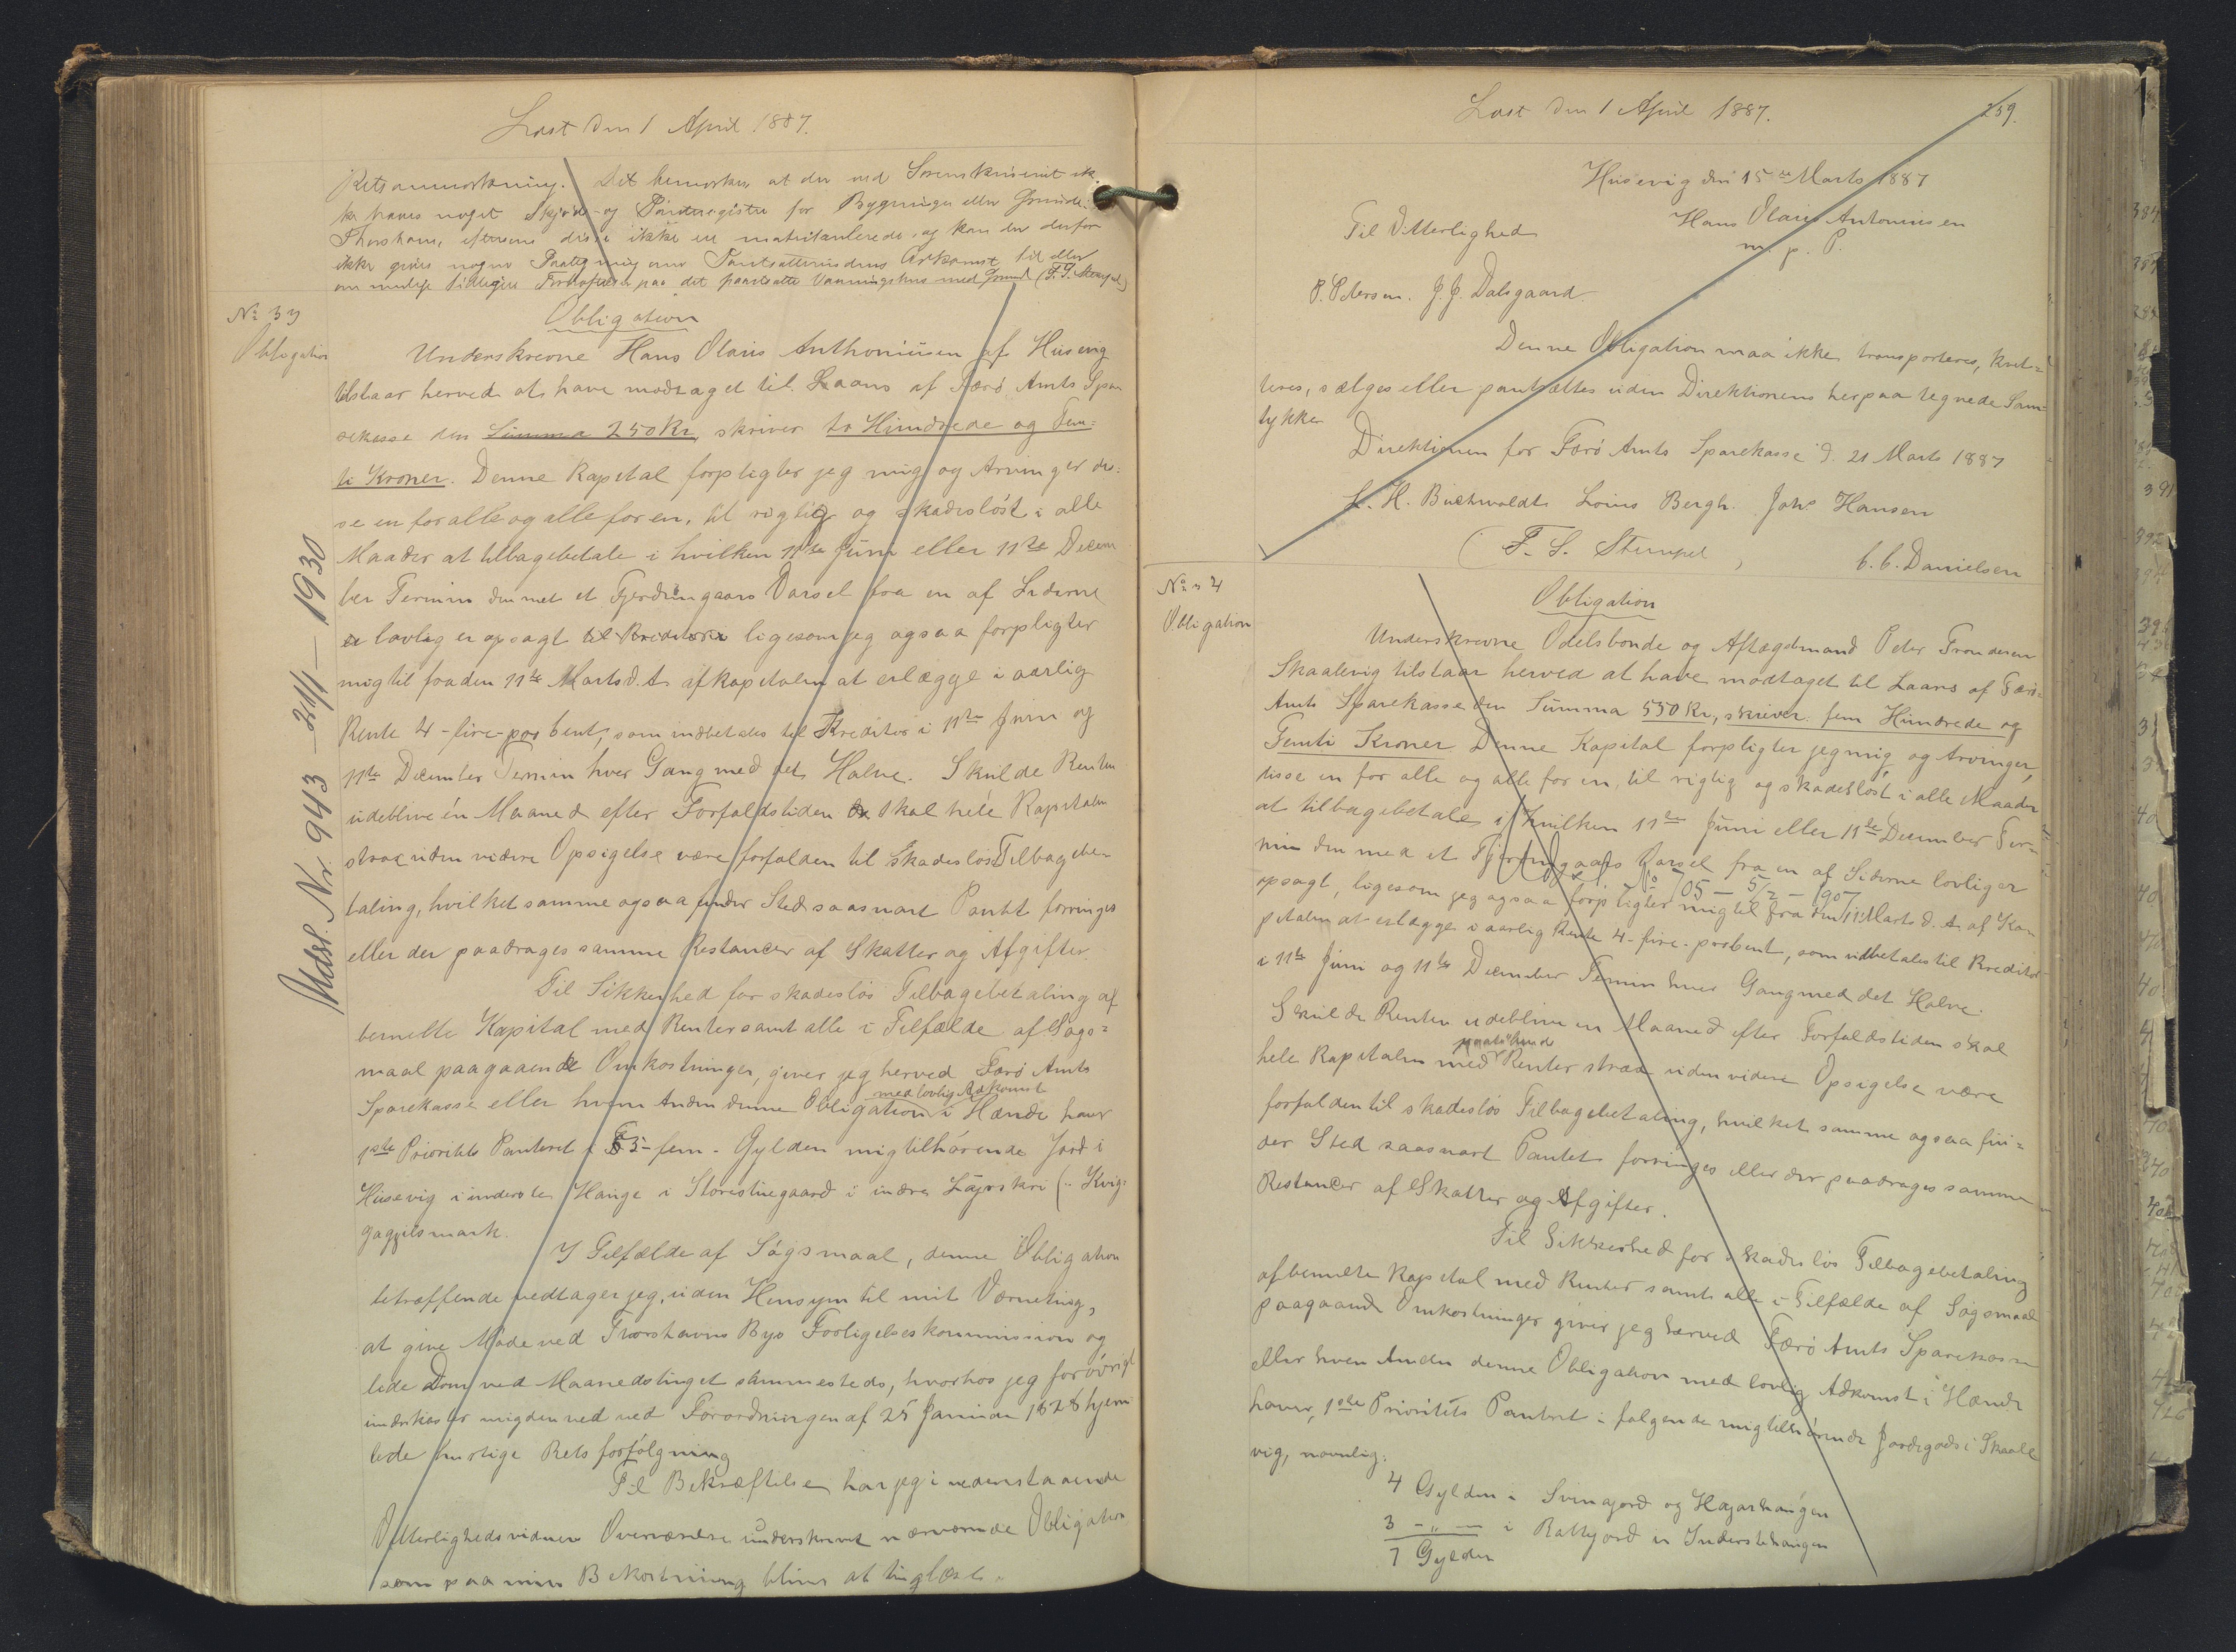 Læst den 1 April 1887.
Retsanmærkning. Det bemærkes at der ved Sorenskriveriet ik-
ke haves noget Skjøde- og Panteregister for Bygninger eller Grunde i
Thorshavn, eftersom disse ikke ere matrikulerede, og kan der derfor
ikke gives nogen Paategning om Pantsætterindens Adkomst til eller
om mulige tidligere Forhæftelser paa det pantsatte Vaaningshus med Grund (F. S. Stempel)
No 33
Obligation
Obligation
Underskrevne Hans Olaus Anthoniusen af Husevig
tilstaar herved at have modtaget til Laans af Færø Amts Spa-
rekasse den Summa 250 Kr, skriver to Hundrede og Fem=
ti Kroner. Denne Kapital forpligter jeg mig og Arvinger dis-
se en for alle og alle for en, til rigtig og skadesløst i alle
Maader at tilbagebetale i hvilken 11te Juni eller 11te Decem
ber Termin den med et Fjerdingaars Varsel fra en af Siderne
er lovlig er opsagt til Kreditor ligesom jeg ogsaa forpligter
mig til fra den 11te Marts d. A. af Kapitalen at erlægge i aarlig
Rente 4 - fire - pro Cent, som indbetales til Kreditor i 11te Juni og
11te December Termin hver Gang med det Halve. Skulde Renten
udeblive én Maaned efter Forfaldstiden skal hele Kapitalen
strax uden videre Opsigelse være forfalden til skadesløs Tilbagebe-
taling, hvilket samme ogsaa finder Sted saasnart Pantet forringes
eller der paadrages samme Restancer af Skatter og Afgifter.
Til Sikkerhed for skadesløs Tilbagebetaling af
bemeldte Kapital med Renter samt alle i Tilfælde af Søgs=
maal paagaaende Omkostninger, giver jeg herved Færø Amts
Sparekasse eller hvem Anden denne Obligation med lovlig Adkomst i Hænde haver
1ste Prioritets Panteret i 5 - fem - Gylden mig tilhørende Jord i
Husevig i inderste Hauge i Storestuegaard i indre
gagzilsmark.
I Tilfælde af Søgsmaal, denne Obligation
betræffende vedtager jeg, uden Hensyn til mit Værneting,
at give Møde ved Thorshavns Byes Forligelseskommission og
lide Dom ved Maanedstinget sammesteds, hvorhos jeg forøvrigt
underkaster mig den ved Forordningen af 25 Januar 1828 hjem
lede hurtige Retsforfølgning
Til Bekræftelse har jeg i nedenstaaende
Vitterlighedsvidners Overværelse underskrevet nærværende Obligation
som paa min Bekostning bliver at tinglæse.
Udsl. Nr. 943 - 21/1 - 1930
Læst den 1 April 1887.
259.
Husevig den 15de Marts 1887
Hans Olaus Antoniusen
m. p. P.
Til Vitterlighed
P. Petersen. J. J. Dalsgaard.
Denne Obligation maa ikke transporteres, kvit=
teres, sælges eller pantsættes uden Direktionens herpaa tegnede Sam=
tykke
Direktionen for Færø Amts Sparekasse d. 21 Marts 1887
L. H. Buchwaldt Louis Bergh. Johs Hansen
(F. S. Stempel)
C. C. Danielsen
No 34
Obligation
Obligation
Underskrevne Odelsbonde og Aftægdsmand Peter Trondesen
Skaalevig tilstaar herved at have modtaget til Laans af Færø
Amts Sparekasse den Summa 550 Kr, skriver fem Hundrede og
Femti Kroner Denne Kapital forpligter jeg mig og Arvinger,
disse en for alle og alle for en, til rigtig og skadesløst i alle Maader
at tilbagebetale i hvilken 11te Juni eller 11te December Ter-
min den med et Fjerdingaars Varsel fra en af Siderne lovlig er
Udsl. No 705 - 5/2 - 1907
opsagt, ligesom jeg ogsaa forpligter mig til fra den 11 Marts d. A. af Ka-
pitalen at erlægge i aarlig Rente 4 - fire - procent, som indbetales til Kreditor
i 11te Juni og 11te December Termin hver Gang med det Halve.
Skulde Renten udeblive en Maaned efter Forfaldstiden skal
hele Kapitalen med Renter strax uden videre Opsigelse være
forfalden til skadesløs Tilbagebetaling, hvilket samme ogsaa fin=
der Sted saasnart Pantet forringes eller der paadrages samme
Restancer af Skatter og Afgifter.
Til Sikkerhed for skadesløs Tilbagebetaling
af bemeldte Kapital med Renter samt alle i Tilfælde af Søgsmaal
paagaaende Omkostninger giver jeg herved Færø Amts Sparekasse
eller hvem Anden denne Obligation med lovlig Adkomst i Hænde
haver, 1ste Prioritets Panteret i følgende mig tilhørende Jordegods i Skaale
vig, navnlig:
4 Gylden i Svinajord og Hagarhaugen
3 -„- i Rattujord u Inderstehaugen
7 Gylden